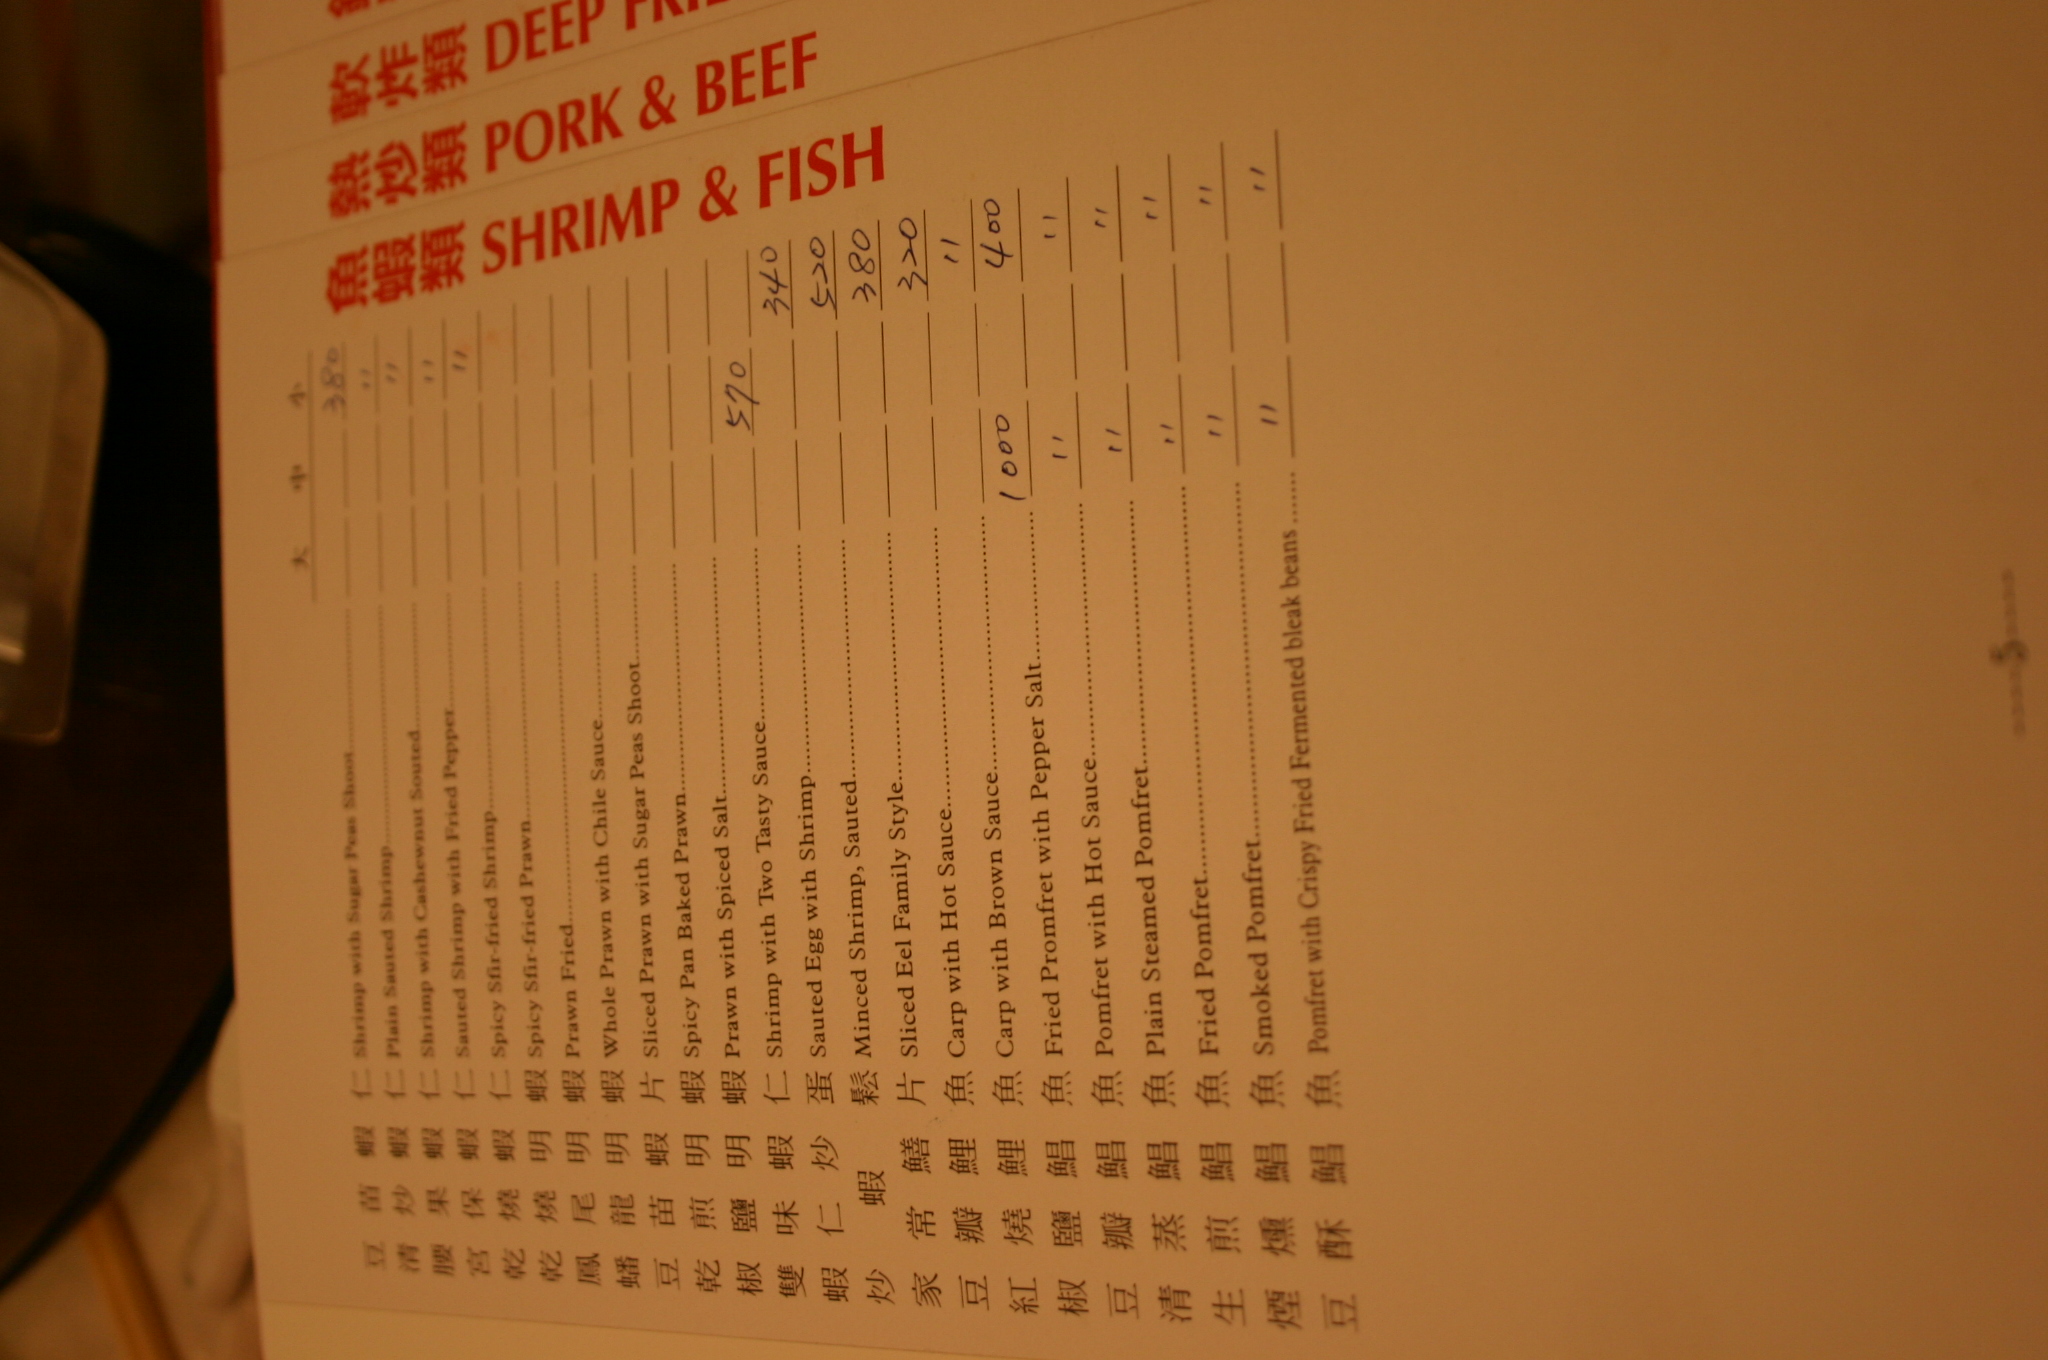 軟炸類 DEEP FRIE
熱炒類 PORK & BEEF
魚蝦類 SHRIMP & FISH
大 中 小
豆苗蝦仁 Shrimp with Sugar Peas Shoot 380
清炒蝦仁 Plain Sauted Shrimp 〃
腰果蝦仁 Shrimp with Cashewnut Souted 〃
宮保蝦仁 Sauted Shrimp with Fried Pepper 〃
乾燒蝦仁 Spicy Sfir-fried Shrimp 〃
乾燒明蝦 Spicy Sfir-fried Prawn
鳳尾明蝦 Prawn Fried
蟠龍明蝦 Whole Prawn with Chile Sauce
豆苗蝦片 Sliced Prawn with Sugar Peas Shoot
乾煎明蝦 Spicy Pan Baked Prawn
椒鹽明蝦 Prawn with Spiced Salt
雙味蝦仁 Shrimp with Two Tasty Sauce 570
蝦仁炒蛋 Sauted Egg with Shrimp 340
炒蝦鬆 Minced Shrimp, Sauted 520
家常鱔片 Sliced Eel Family Style 380
豆瓣鯉魚 Carp with Hot Sauce 320
紅燒鯉魚 Carp with Brown Sauce 〃
椒鹽鯧魚 Fried Promfret with Pepper Salt 1000 400
豆瓣鯧魚 Pomfret with Hot Sauce 〃 〃
清蒸鯧魚 Plain Steamed Pomfret 〃 〃
生煎鯧魚 Fried Pomfret 〃 〃
煙燻鯧魚 Smoked Pomfret 〃 〃
豆酥鯧魚 Pomfret with Crispy Fried Fermented bleak beans 〃 〃
5